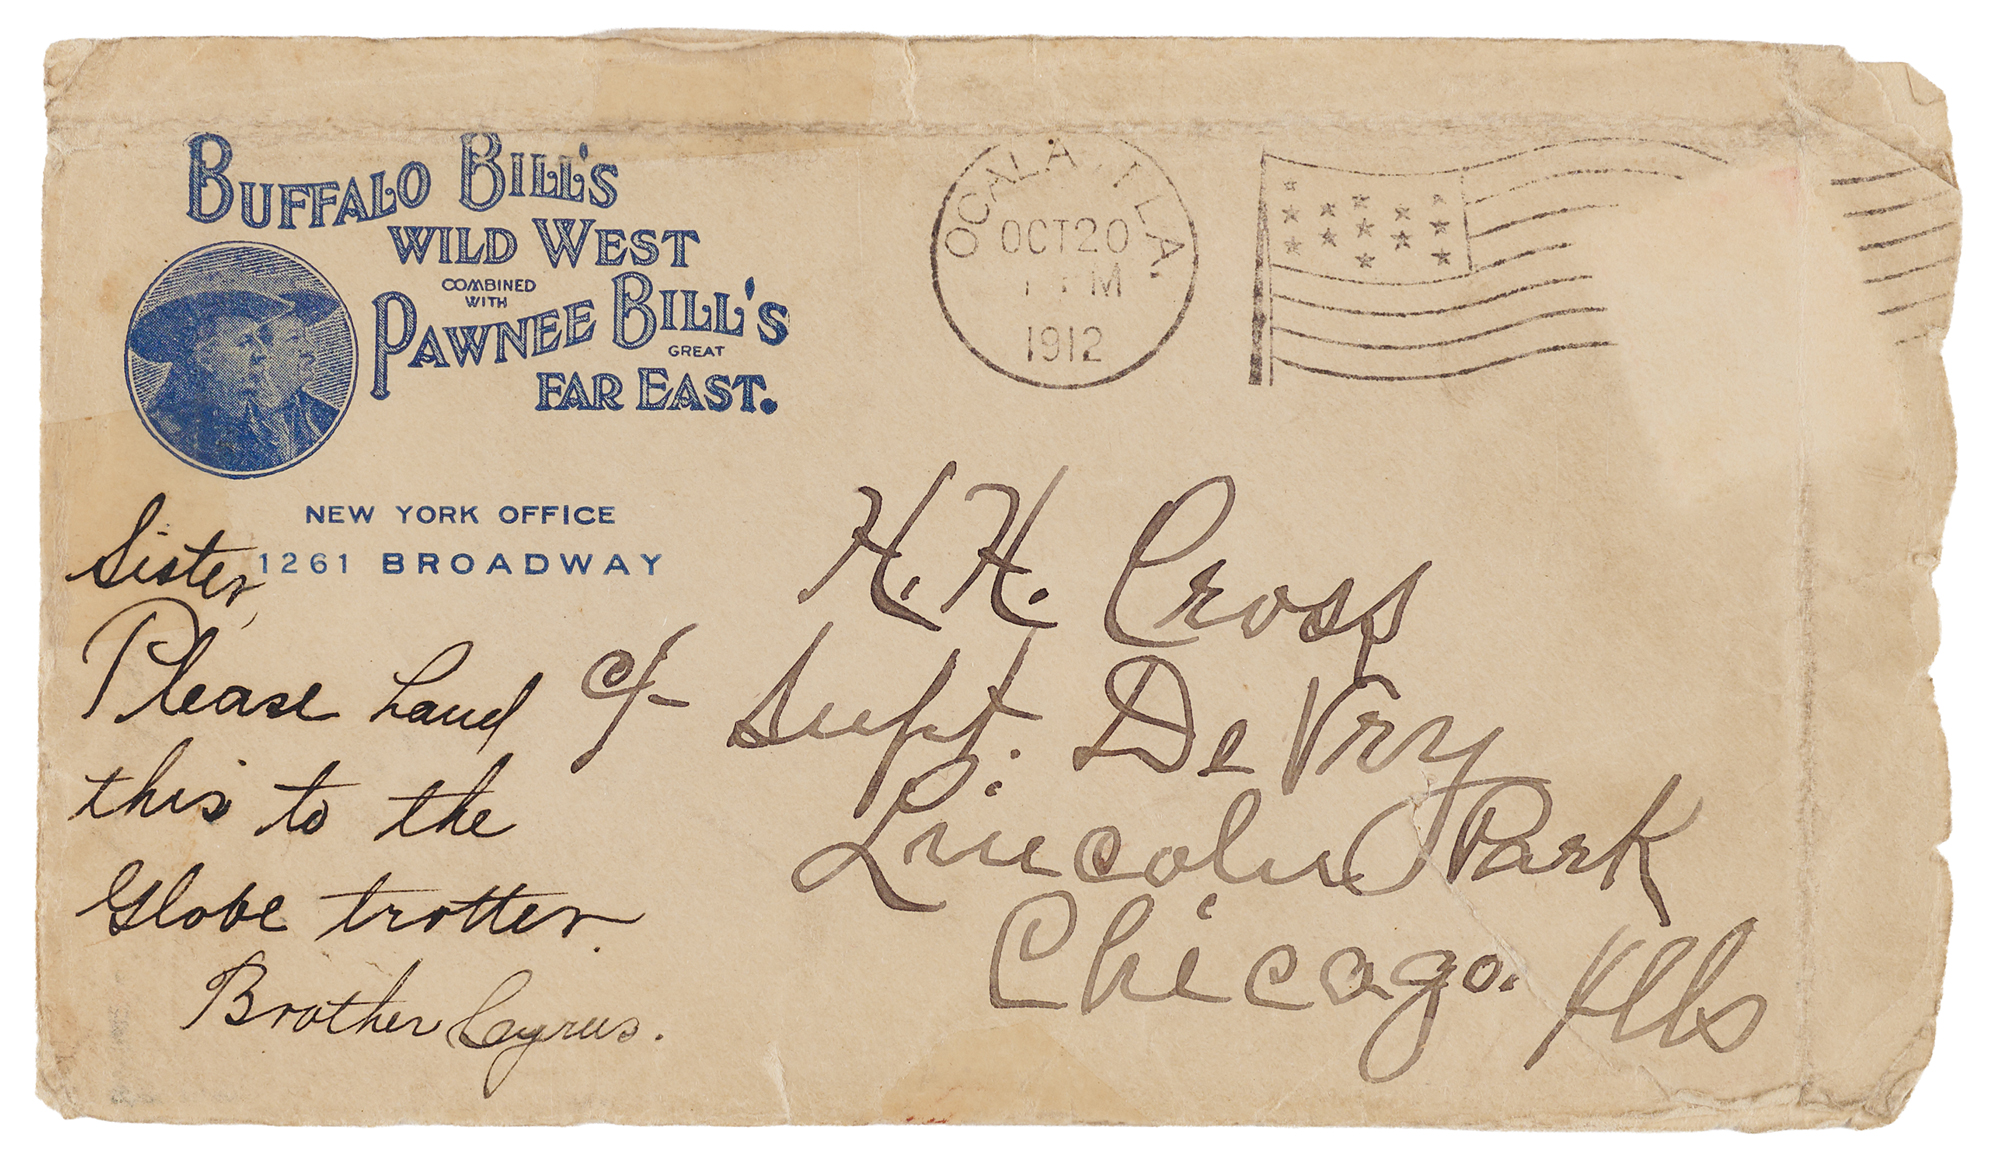 BUFFALO BILL'S
WILD WEST
COMBINED
WITH
PAWNEE BILL'S
GREAT
FAR EAST.
NEW YORK OFFICE
1261 BROADWAY
OCALA, FLA.
OCT 20
M
1912
H. H. Cross
c/- Supt. De Vry
Lincoln Park
Chicago. Ills
Sister,
Please hand
this to the
Globe trotter.
Brother Cyrus.